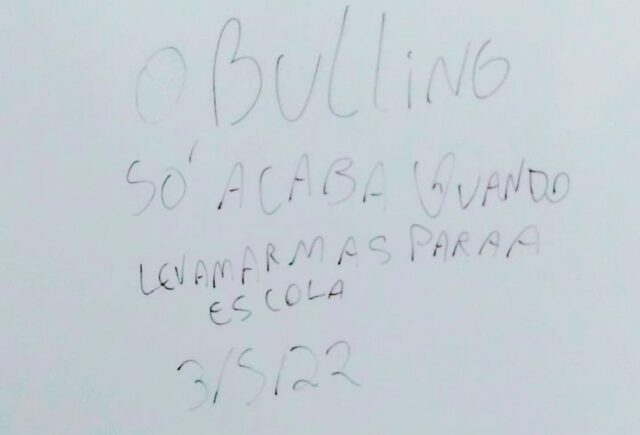 O BULLING
SÓ ACABA QUANDO
LEVAMARMAS PARA A
ESCOLA
3/5/22